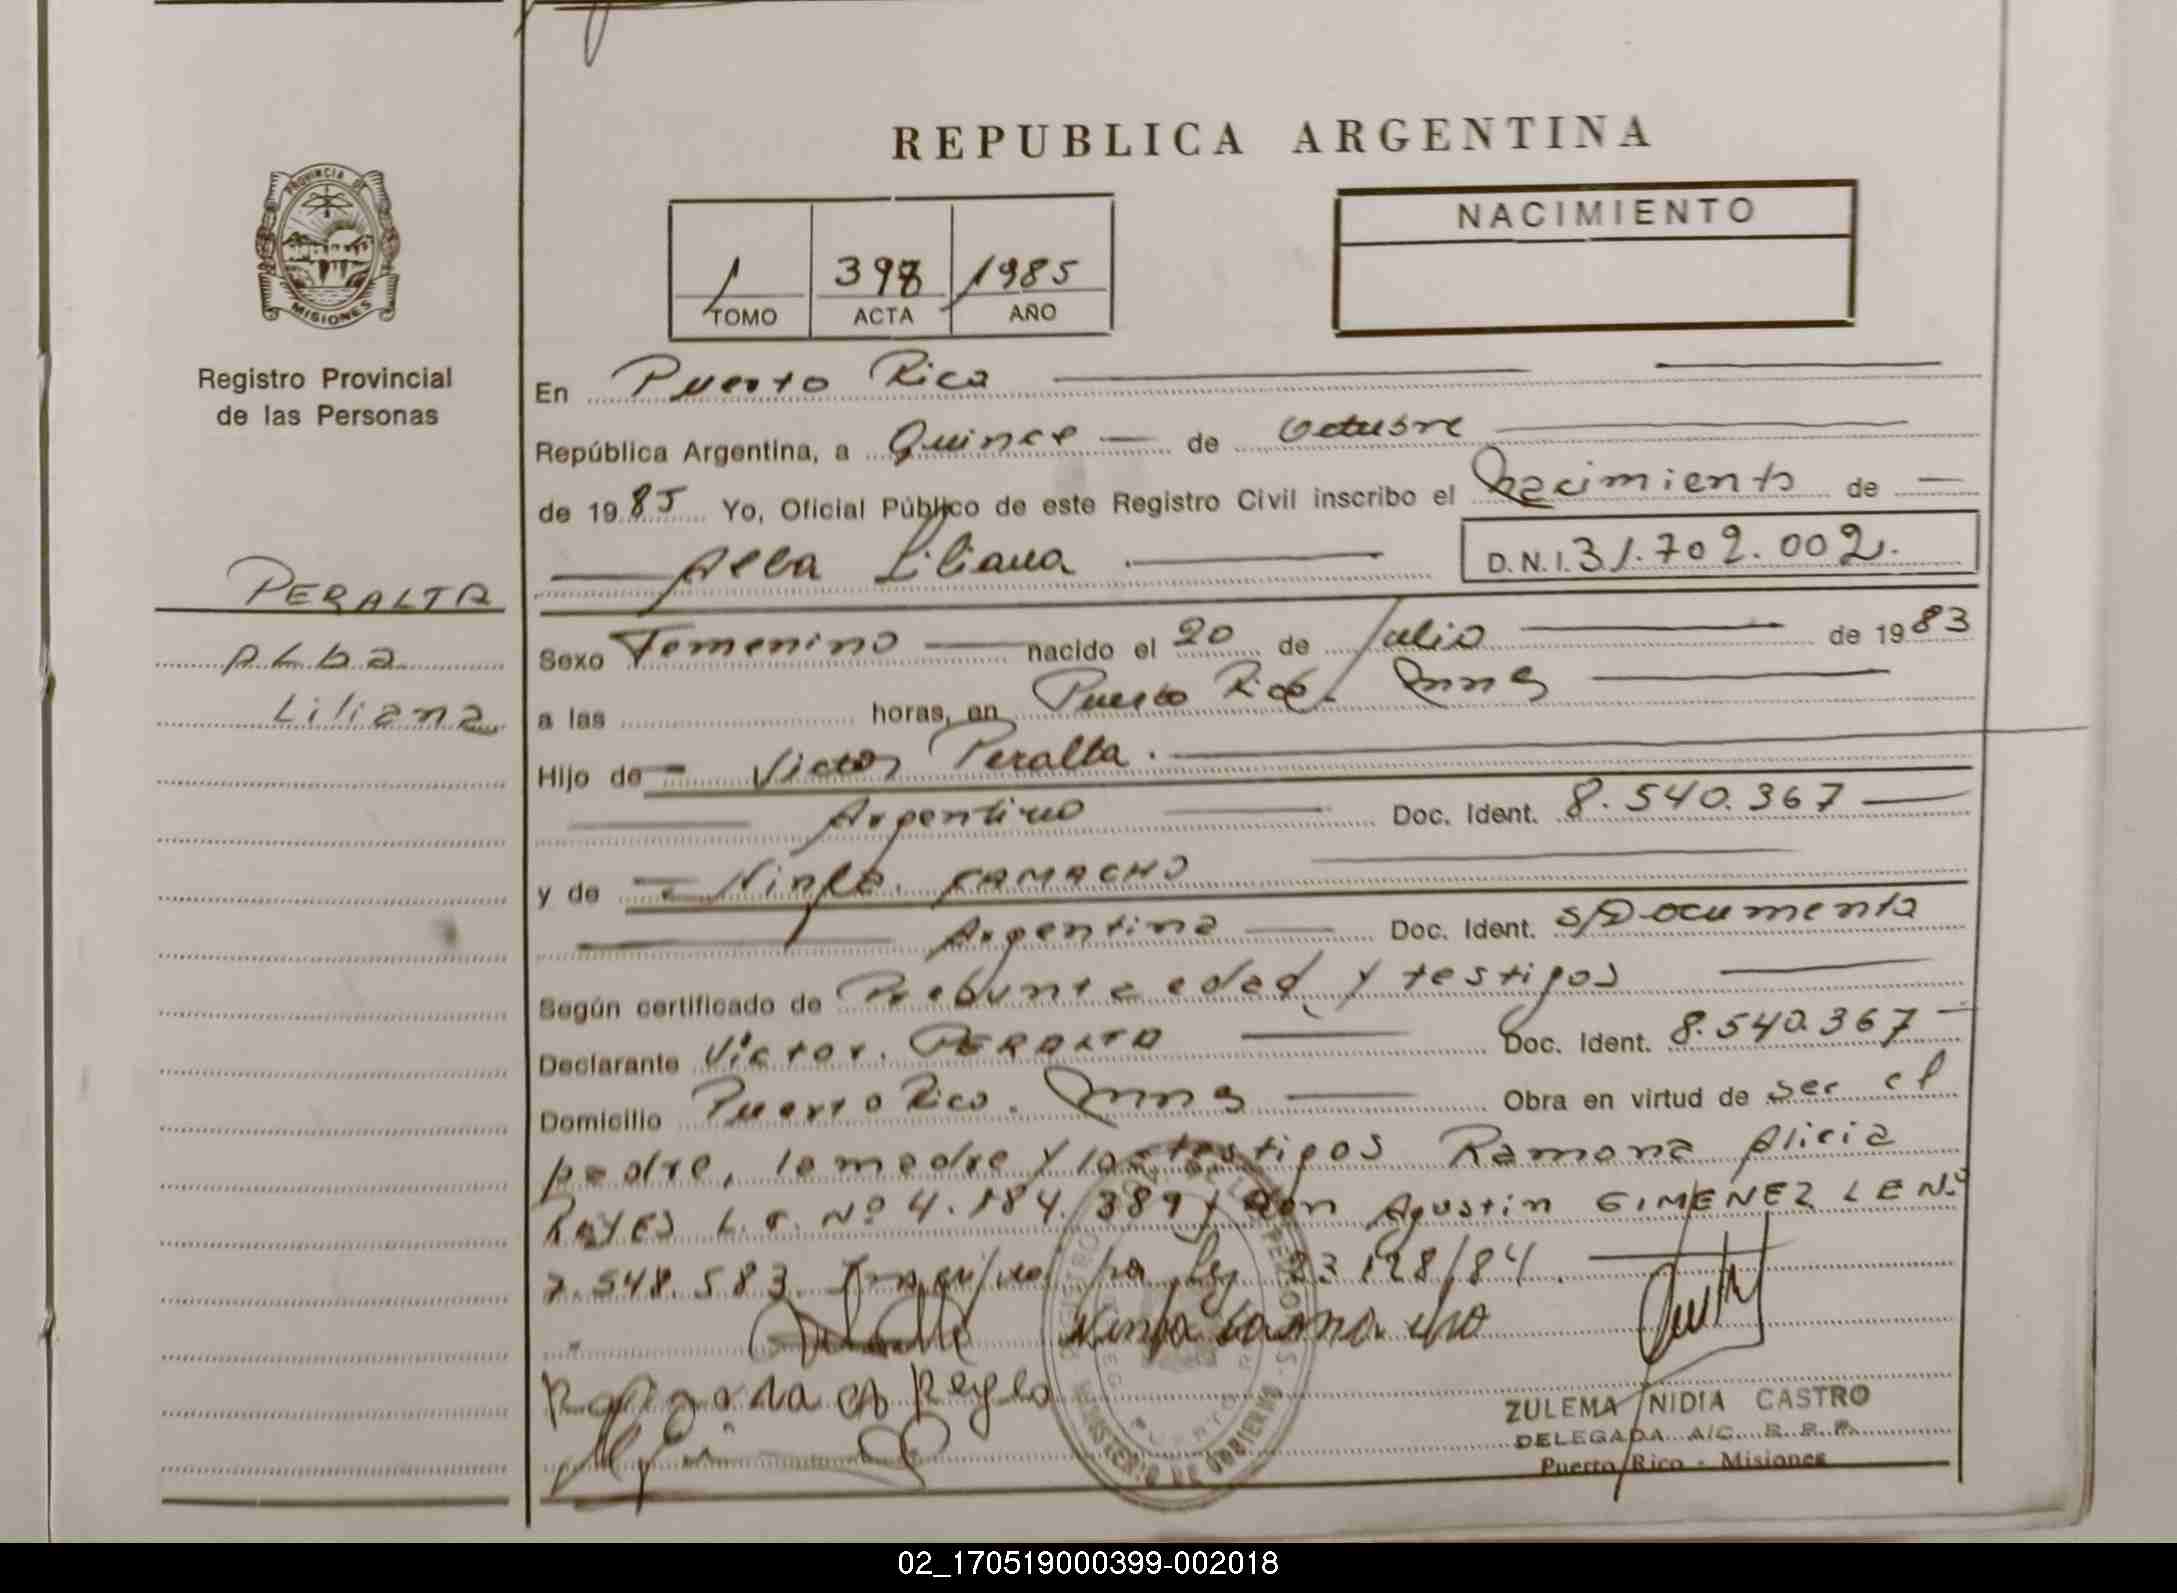 REPUBLICA ARGENTINA
PROVINCIA DE
MISIONES
Registro Provincial
de las Personas
PERALTA
Alba
Liliana
1 398 1985
TOMO ACTA AÑO
NACIMIENTO
En Puerto Rico
República Argentina, a Quince de Octubre
de 1985 Yo, Oficial Público de este Registro Civil inscribo el Nacimiento de
Alba Liliana D.N.I. 31.702.002.
Sexo Femenino nacido el 20 de Julio de 1983
a las horas, en Puerto Rico. Mnes
Hijo de Victor Peralta.
Argentino Doc. Ident. 8.540.367
y de Ninfa. CAMACHO
Argentina Doc. Ident. S/Documento
Según certificado de Presunta edad y testigos
Declarante Victor. PERALTA Doc. Ident. 8.540.367
Domicilio Puerto Rico. Mnes Obra en virtud de ser el
padre, la madre y los testigos Ramona Alicia
Reyes L.C. Nº 4.184.389 y Don Agustin GIMENEZ L E Nº
7.548.583. ley 23.128/84.
Ninfa Camacho
Ramona A Reyes
ZULEMA NIDIA CASTRO
DELEGADA A/C. R. R. P.
Puerto Rico - Misiones
MINISTERIO DE GOBIERNO
02_170519000399-002018